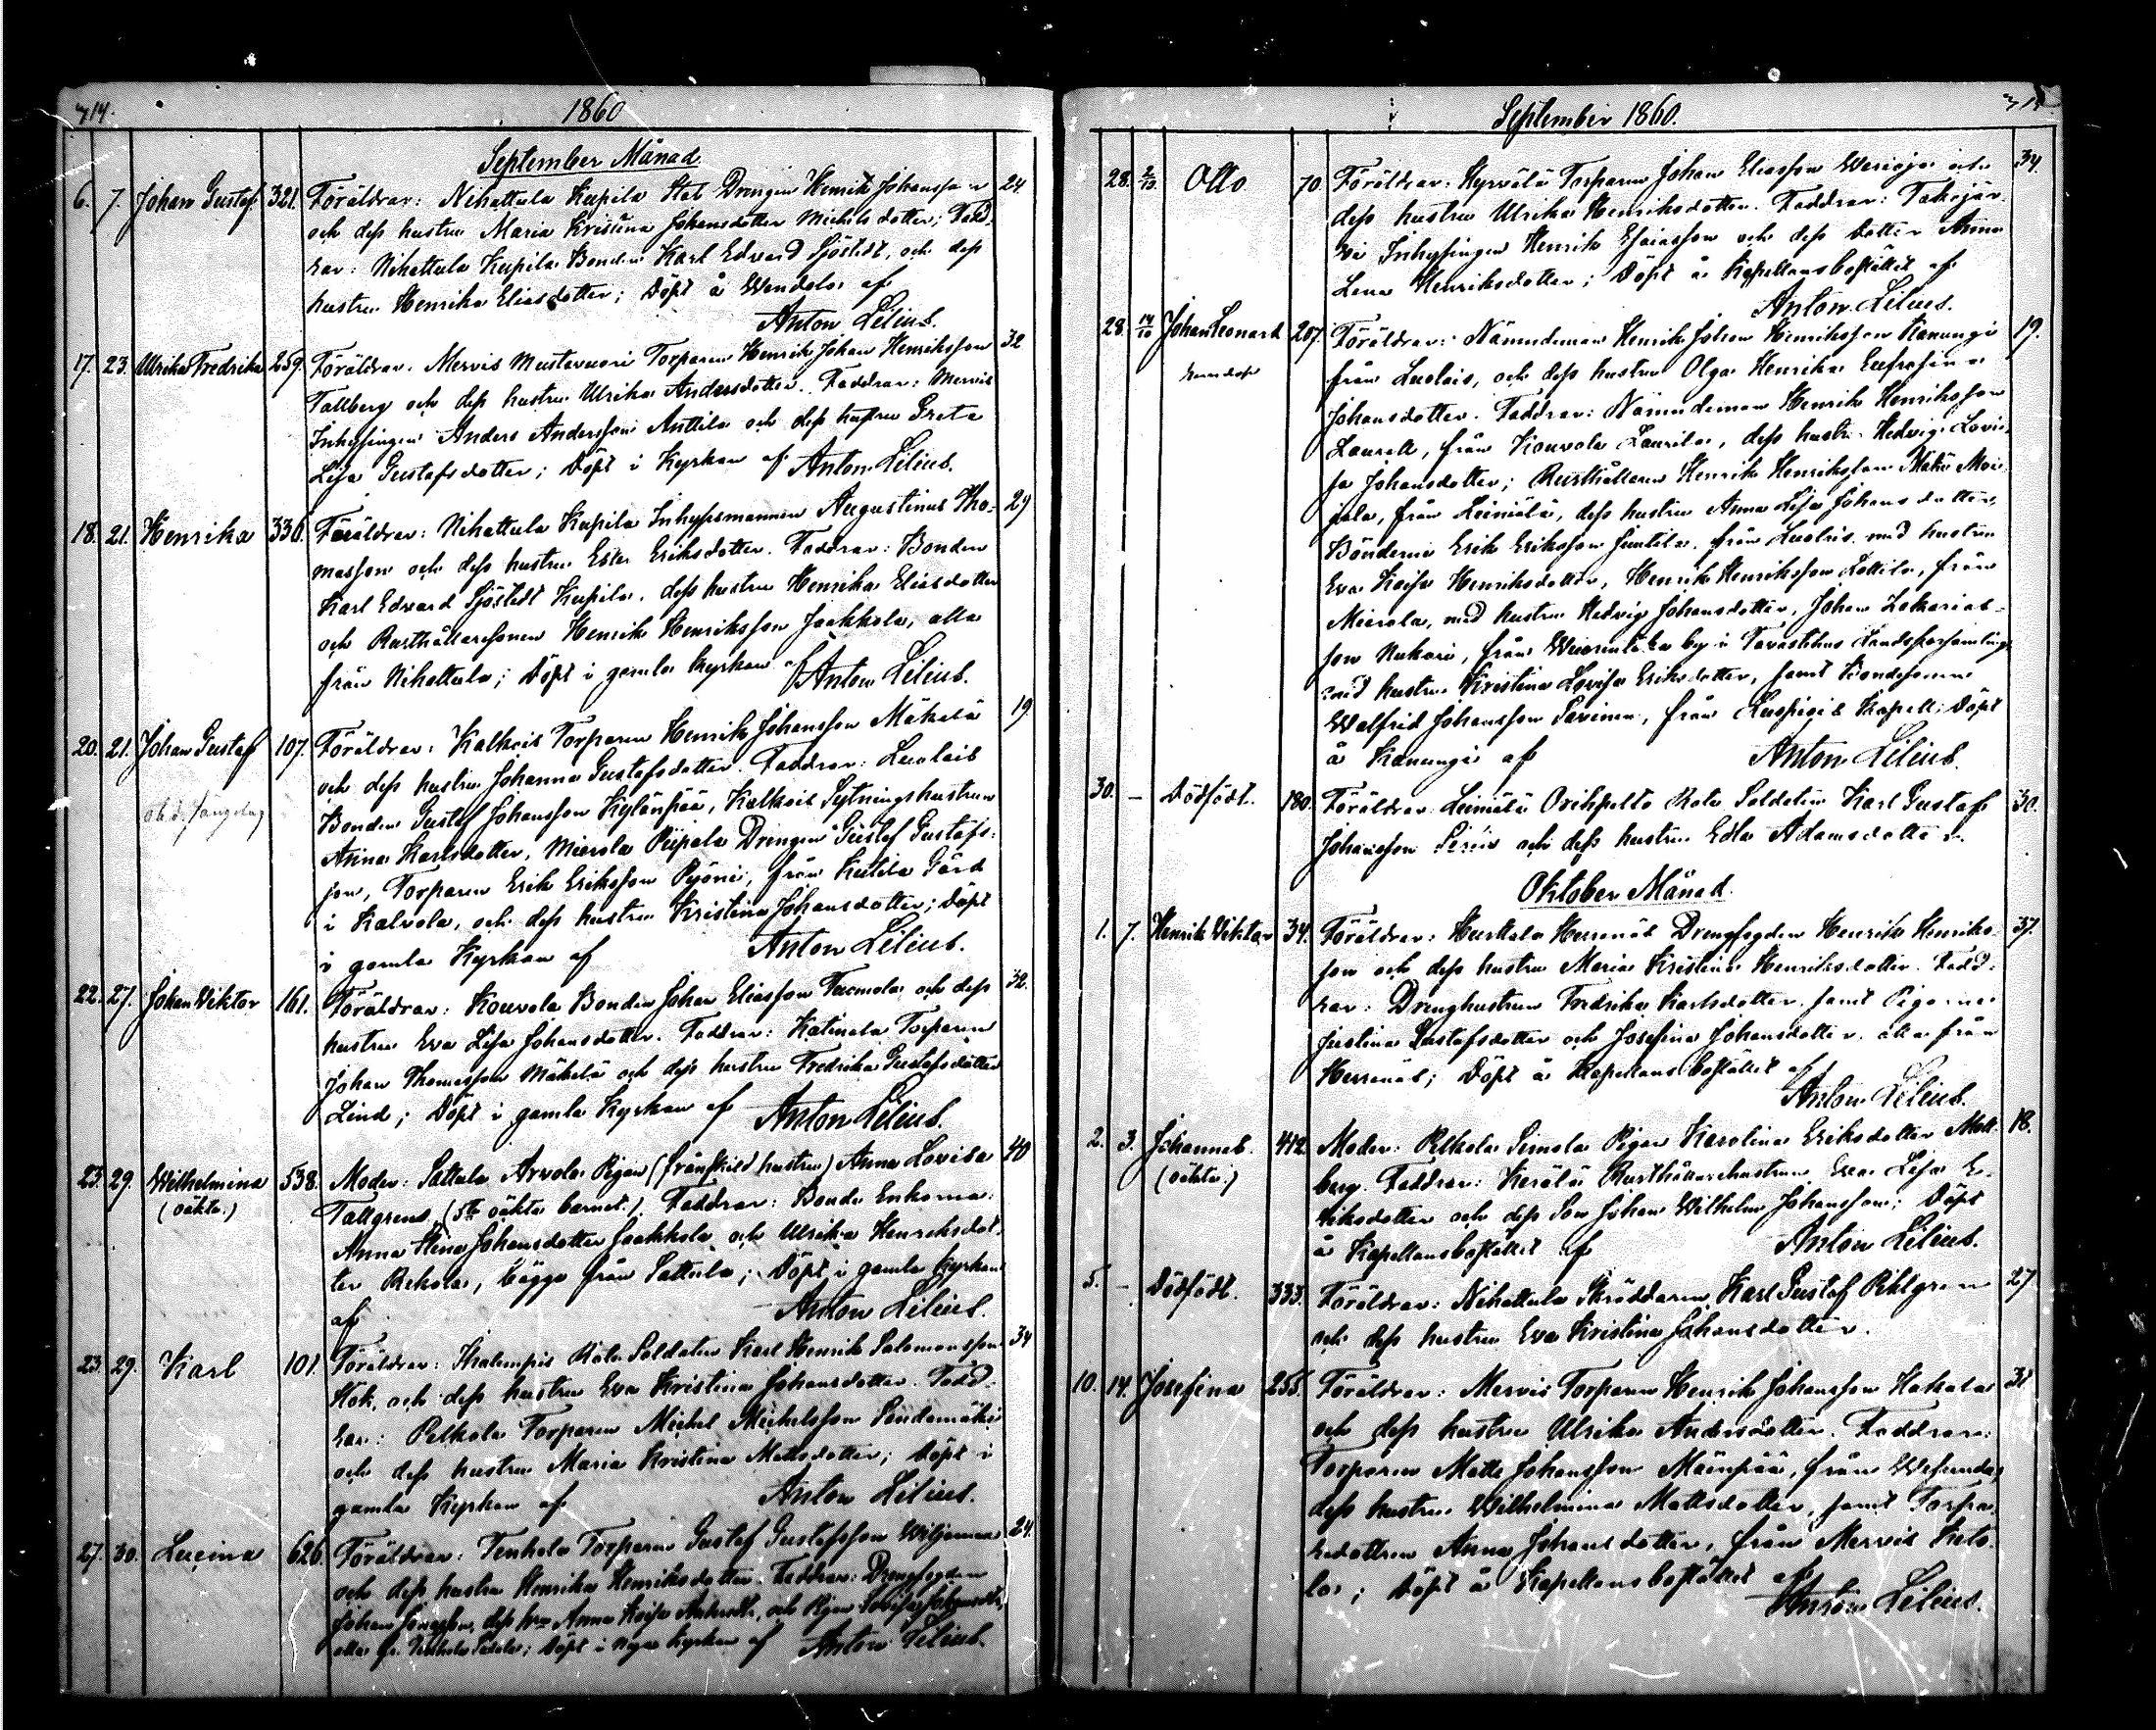 714.
1860
September Månad.
6. 7. Johan Gustaf 321. Föräldrar: Nihattula Kupila Stat Drengen Henrik Johansson 24
och dess hustru Maria Kristina Johansdotter Michelsdotter; Fadd-
rar: Nihattula Kupila Bonden Karl Edvard Sjöstedt, och dess
hustru Henrika Eliasdotter; Döpt å Wendelä af
Anton Lilius.
17. 23. Ulrika Fredrika 259. Föräldrar. Mervis Mustavuori Torparen Henrik Johan Henriksson 32
Tallberg och dess hustru Ulrika Andersdotter. Faddrar: Mervis
Inhysingen Anders Andersson Anttila och dess hustru Greta
Lisa Gustafsdotter; Döpt i Kyrkan af Anton Lilius.
18. 21. Henrika 336. Föräldrar: Nihattula Kupila Inhysesmannen Augustinus Tho- 29
masson och dess hustru Ester Eriksdotter. Faddrar: Bonden
Karl Edvard Sjöstedt Kupila, dess hustru Henrika Eliasdotter
och Rusthållaresonen Henrik Henriksson Jaakkola, alla
från Nihattula; Döpt i gamla Kyrkan af Anton Lilius.
20. 21. Johan Gustaf 107. Föräldrar: Kalkois Torparen Henrik Johansson Mäkelä 19
och dess hustru Johanna Gustafsdotter. Faddrar: Luolais
Bonden Gustaf Johansson Kylänpää, Kalkois Sytningshustrun
Anna Karlsdotter, Mierola Piipala Drengen Gustaf Gustafs-
son, Torparen Erik Eriksson Pyöni, från Kutila Gård
i Kalvola, och dess hustru Kristina Johansdotter; Döpt
i gamla Kyrkan af Anton Lilius.
22. 27. Johan Viktor 161. Föräldrar: Kouvola Bonden Johan Eliasson Tuomola och dess 32.
hustru Eva Lisa Johansdotter. Faddrar: Katinala Torparen
Johan Thomasson Mäkelä och dess hustru Fredrika Gustafsdotter
Lind; Döpt i gamla Kyrkan af Anton Lilius.
23. 29. Wilhelmina 538. Moder: Sattula Arvola Pigan (frånskild hustru) Anna Lovisa 40
(oäkta.) Tallgren, (5te oäkta barnet.). Faddrar: Bonde Enkorna
Anna Stina Johansdotter Jaakkola och Ulrika Henriksdot-
ter Rekola, bägge från Sattula; Döpt i gamla Kyrkan
af Anton Lilius.
23. 29. Karl 101. Föräldrar: Rota Soldaten Karl Henrik Salomonsson 34
Hok, och dess hustru Eva Kristina Johansdotter. Fadd-
rar: Pelkola Torparen Michel Michelsson Sandamäki
och dess hustru Maria Kristina Mattsdotter; Döpt i
gamla Kyrkan af Anton Lilius.
27. 30. Lucina 626. Föräldrar: Tenhola Torparen Gustaf Gustafsson Wiljamaa 24.
och dess hustru Henrika Henriksdotter. Faddrar: Drengfogden
Johan dess Anna Kaisa och Pigan
alla fr. Döpt i nya Kyrkan af Anton Lilius.
September 1860.
28. 2/10. Otto 70. Föräldrar: Hyrvälä Torparen Johan Eliasson och 34.
dess hustru Ulrika Henriksdotter. Faddrar: Takajär-
vi Inhysingen Henrik Esaiasson och dess Dotter Anna
Lena Henriksdotter; Döpt å Kapellansbostället af
Anton Lilius.
28. 14/10 Johan Leonard 207. Föräldrar: Nämndeman Henrik Johan Henriksson Kanungi 19.
från Luolais, och dess hustru Olga Henrika Eufrosina
Johansdotter. Faddrar: Nämndeman Henrik Henriksson
Laurell, från Kouvola Laurila, dess hustru Hedvig Lovi-
sa Johansdotter; Rusthållaren Henrik Henriksson
från Leiniälä, dess hustru Anna Lisa Johansdotter,
Bönderne Erik Eriksson Juntila från Luolais med hustru
Eva Kaisa Henriksdotter, Henrik Henriksson Lottila, från
Mierola, med hustru Hedvig Johansdotter, Johan Zakarias-
son Nukari, från by i Tavastehus Landsförsamling,
med hustru Kristina Lovisa Eriksdotter, samt Bondesonen
Walfrid Johansson Savinen, från Kapell; Döpt
å Kanungi af Anton Lilius.
30. – Dödfödt. 180. Föräldrar Leiniälä Orihpelto Rote Soldaten Karl Gustaf 30.
Johansson och dess hustru Edla Adamsdotter.
Oktober Månad.
1. 7. Henrik Viktor 34. Föräldrar: Hurttala Herrenäs Drengfogden Henrik Henriks- 37.
son och dess hustru Maria Kristina Henriksdotter. Fadd-
rar: Drenghustrun Fredrika Karlsdotter, samt Pigorna
Justina Gustafsdotter och Josefina Johansdotter, alla från
Herrenäs; Döpt å Kapellansbostället af
Anton Lilius.
2. 3. Johannes. 412. Moder: Pelkola Simola Pigan Karolina Eriksdotter Matt- 18.
(oäkta.) berg. Faddrar: Kerälä Rusthållarehustrun Eva Lisa E-
riksdotter och dess Son Johan Wilhelm Johansson; Döpt
å Kapellansbostället af Anton Lilius.
5. – Dödfödt. 333. Föräldrar: Nihattula Skräddaren Karl Gustaf Pihlgren 27.
och dess hustru Eva Kristina Johansdotter.
10. 14. Josefina 255. Föräldrar: Mervis Torparen Henrik Johansson Hakala 31
och dess hustru Ulrika Andersdotter. Faddrar:
Torparen Matts Johansson Mäenpää, från Wesunda,
dess hustru Wilhelmina Mattsdotter, samt Torpa-
redottren Anna Johansdotter, från Mervis Keto-
la; Döpt å Kapellansbostället af
Anton Lilius.